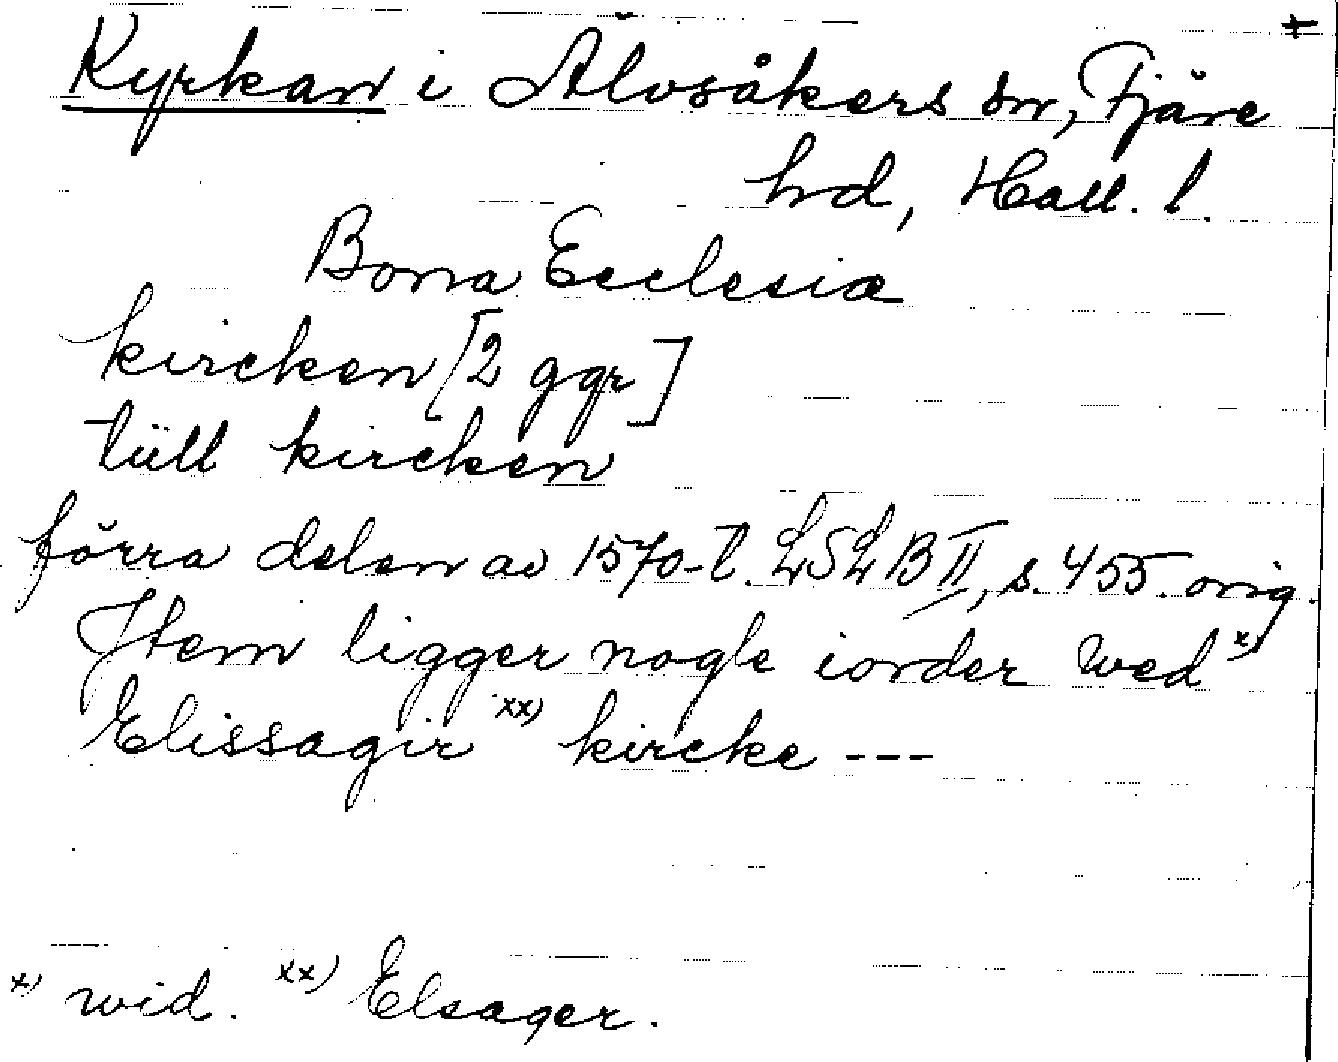 ‡
Kyrkan i Älvsåkers sn, Fjäre
hd, Hall. l.
Bona Ecclesiæ
kircken [2 ggr]
tüll kircken
förra delen av 1570-t. LSLB II, s. 455. orig.
Item ligger nogle iorder wed x)
Elissagir xx) kircke ---
x) wid. xx) Elsager.